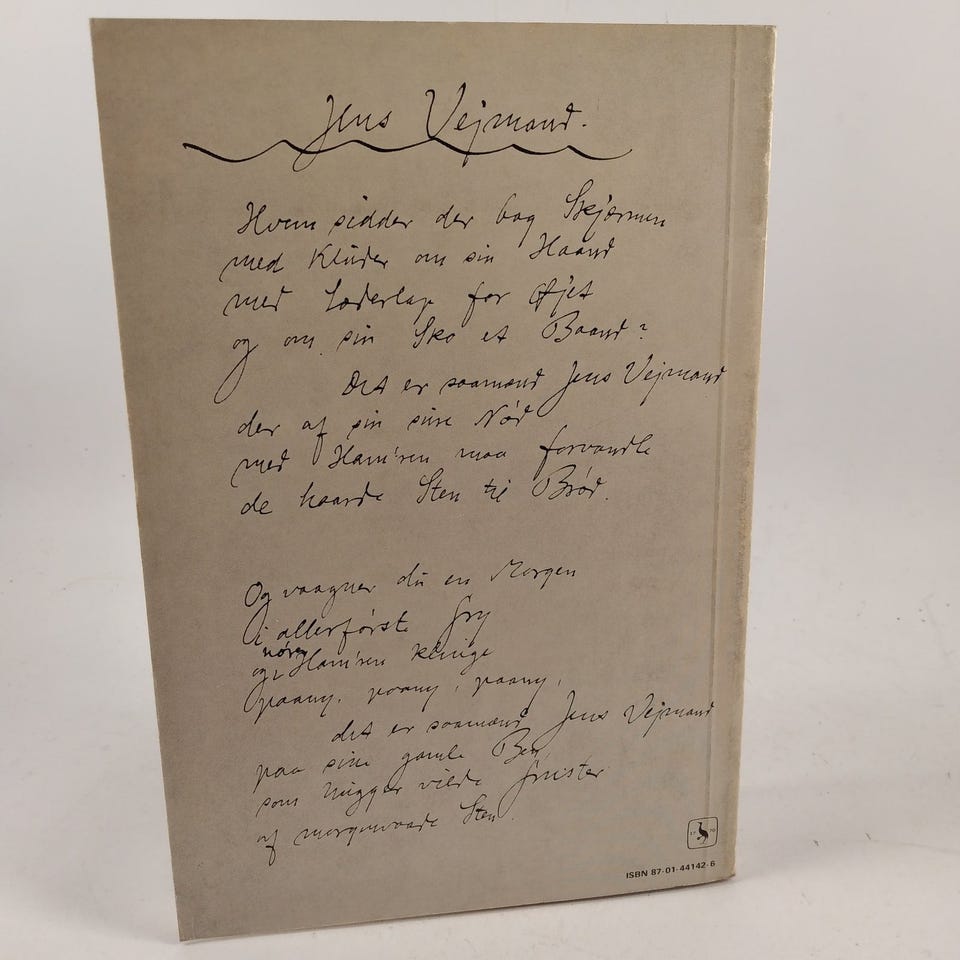 Jens Vejmand.
Hvem sidder der bag Skjærmen
med Klude om sin Haand
med Læderlap for Øjet
og om sin Sko et Baand?
Det er saamænd Jens Vejmand
der af sin sure Nød
med Ham'ren maa forvandle
de haarde Sten til Brød.
Og vaagner du en Morgen
i allerførste Gry
og hører Ham'ren klinge
paany, paany, paany,
det er saamænd Jens Vejmand
paa sine gamle Ben
som hugger vilde Gnister
af morgenvaade Sten.
17 70
ISBN 87-01-44142-6